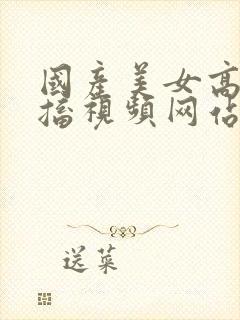 國産美女高
播視頻网佔
送菜